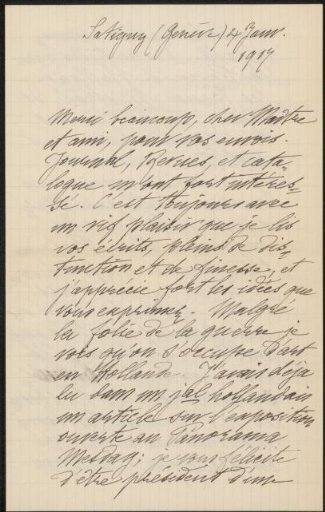 Satigny (Genève) 4 Janv.
1917
Merci beaucoup, cher Maître
et ami, pour vos envois.
Journal, Revues, et cata-
logue m'ont fort intéres-
sé. C'est toujours avec
un vif plaisir que je lis
vos écrits, pleins de dis-
tinction et de finesse, et
j'apprécie fort les idées que
vous exprimez. Malgré
la folie de la guerre je
vois qu'on s'occupe d'art
en Hollande. J'avais déjà
lu dans un jal hollandais
un article sur l'exposition
ouverte au Panorama
Mesdag; je vous félicite
d'être président d'une